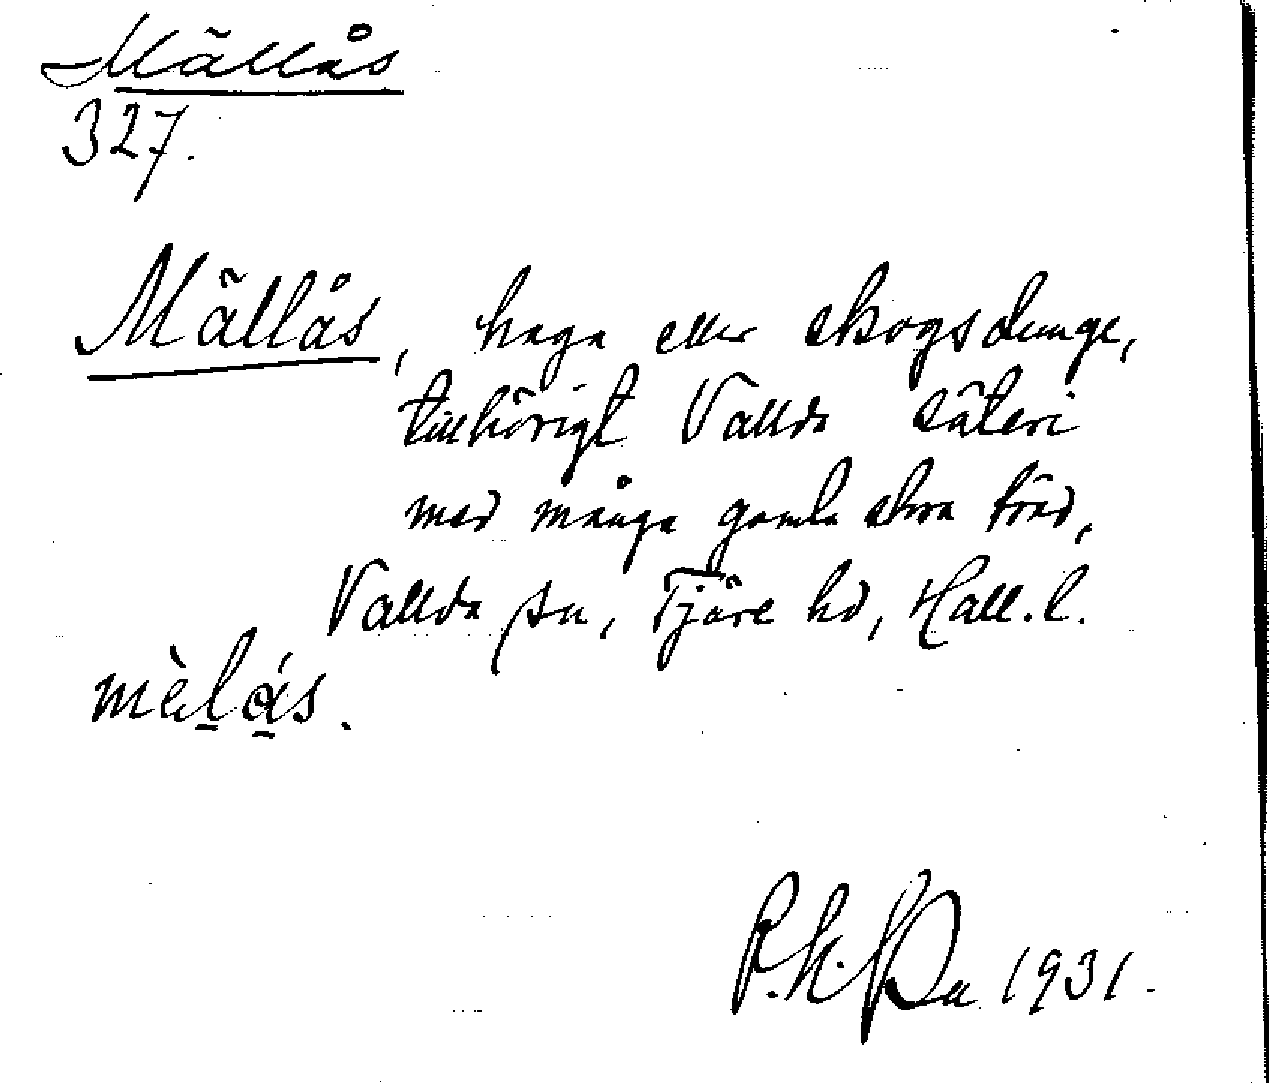 Mällås
327.
Mällås, haga eller skogsdunge,
tillhörigt Vallda säteri
med många gamla stora träd,
Vallda sn, Fjäre hd, Hall. l.
mὲlås.
P. h. 1931.